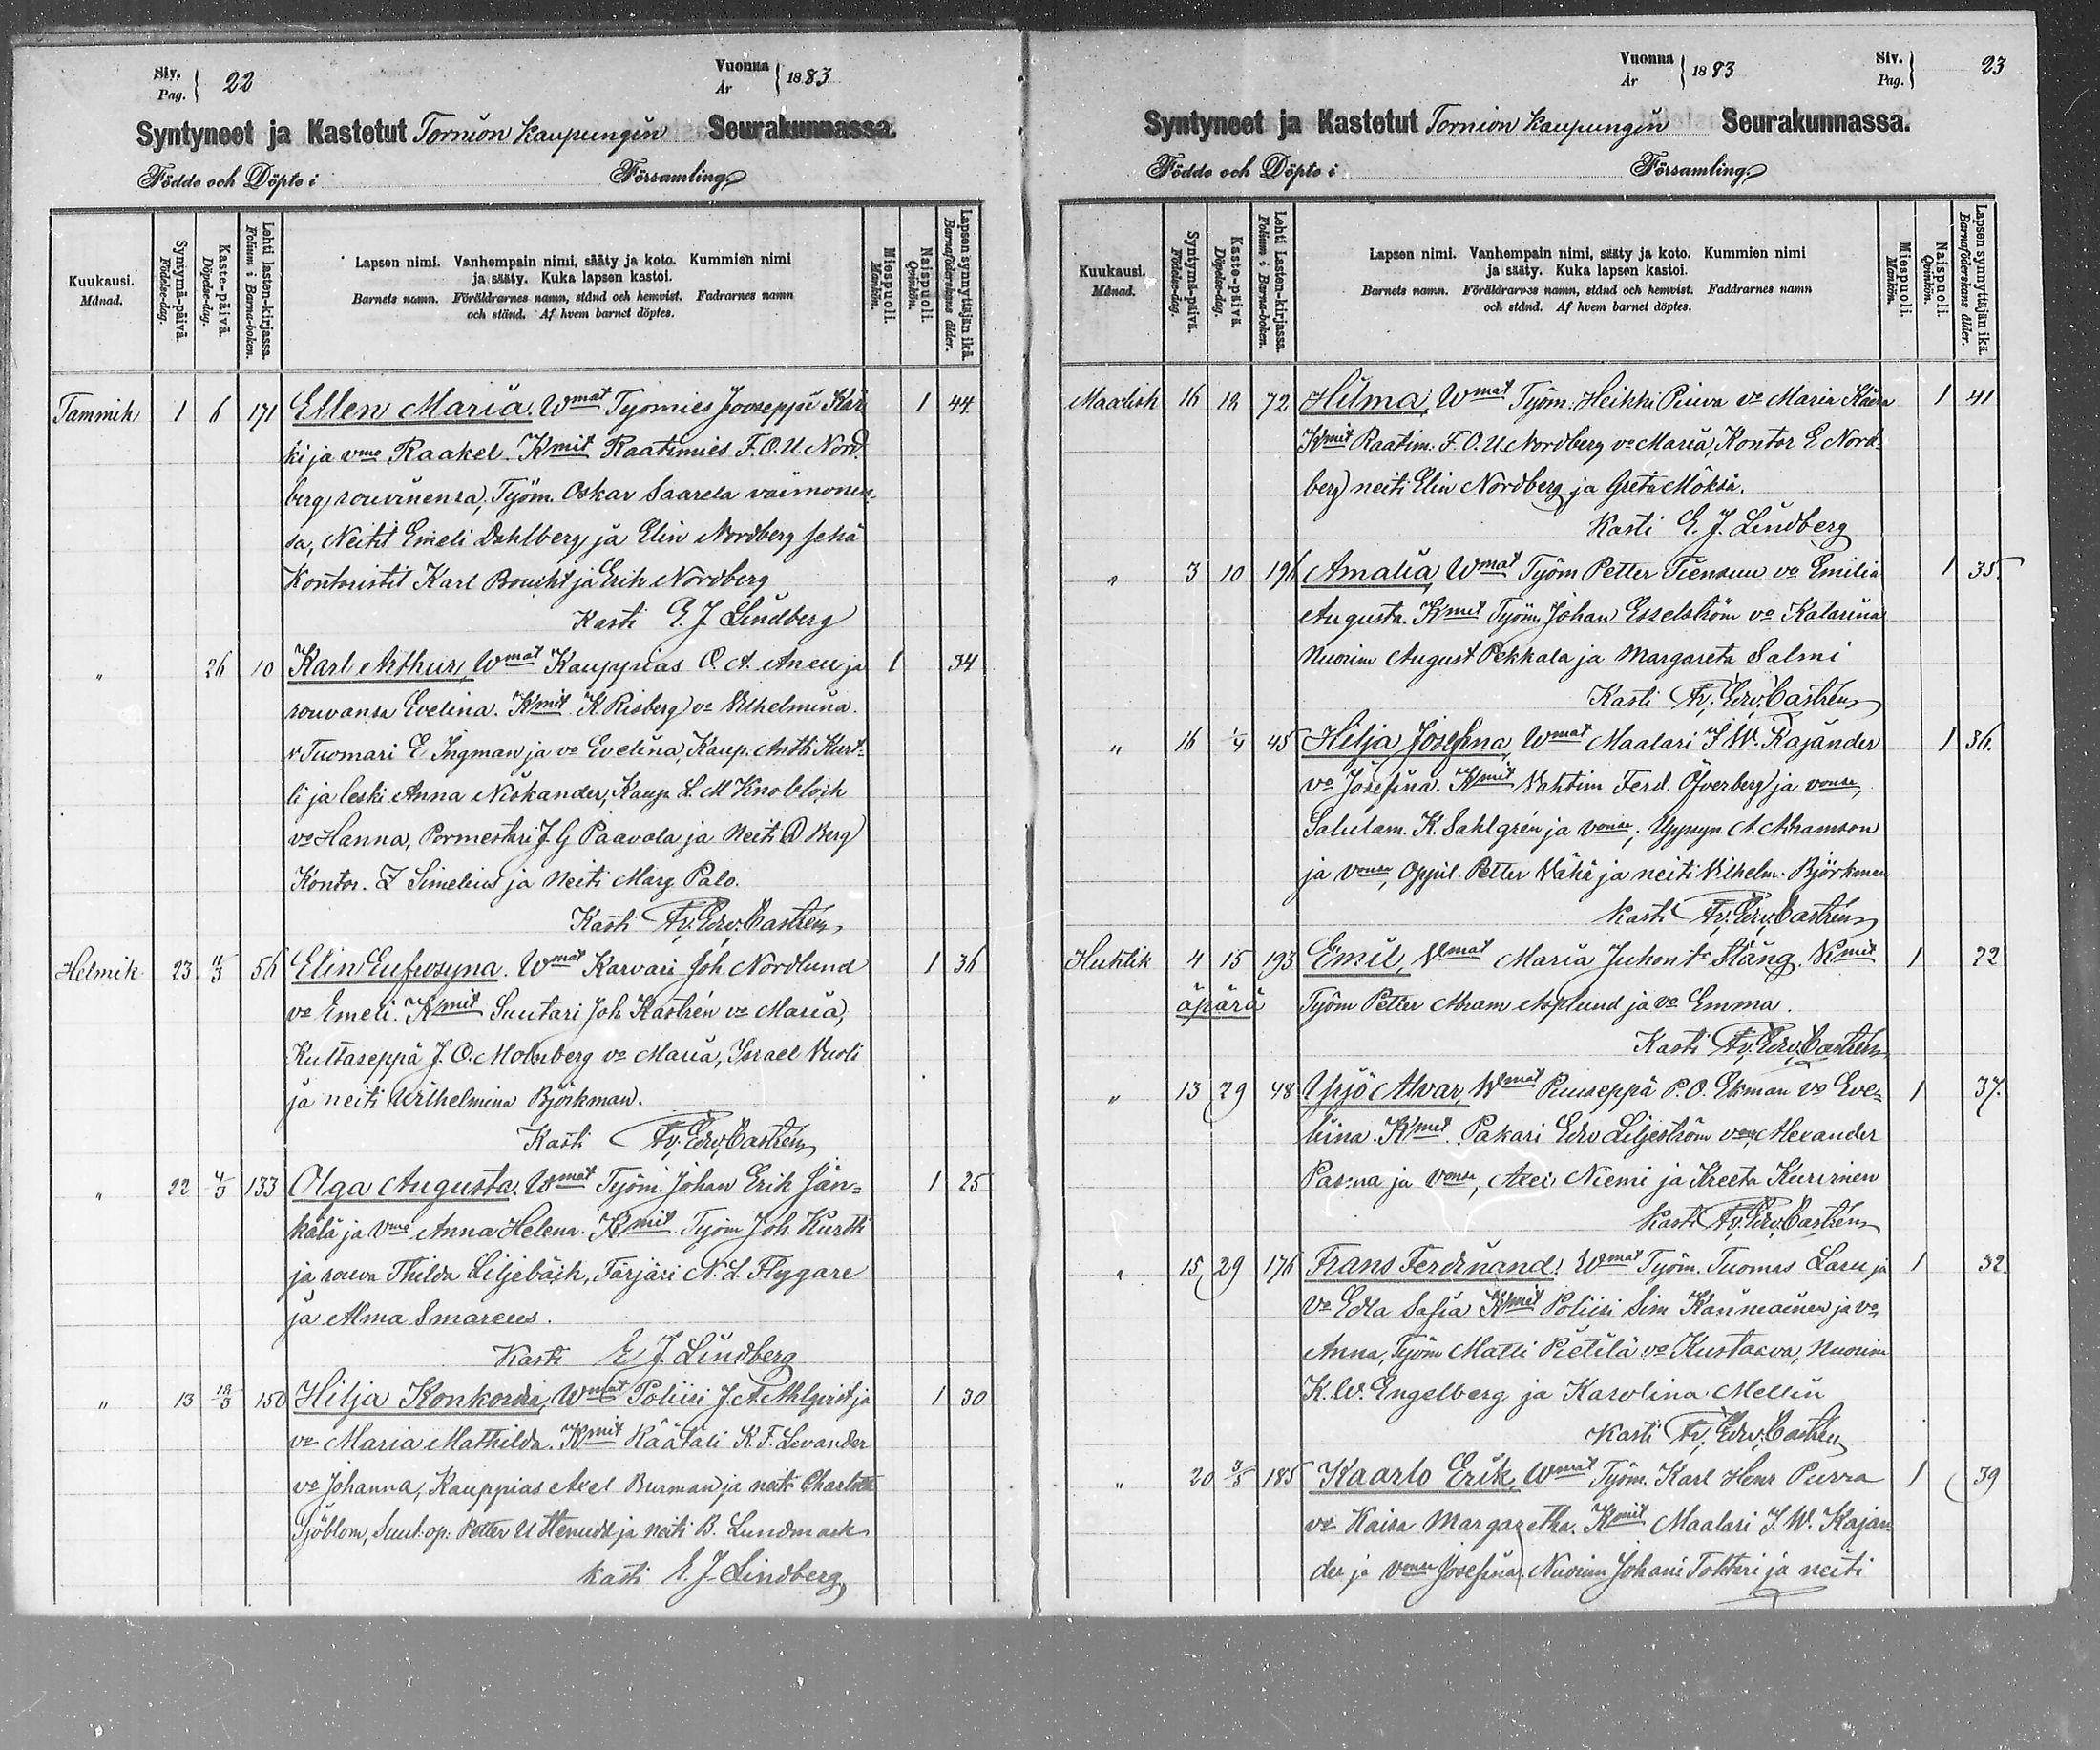 Siv. Pag. 22 Vuonna År 1883
Syntyneet ja Kastetut Tornion Kaupungin Seurakunnassa.
Födde och Döpte i Församling
Kuukausi. Månad.
Syntymä-päivä. Födelse-dag.
Kaste-päivä. Döpelse-dag.
Lehti lasten-kirjassa. Folium i Barna-boken.
Lapsen nimi. Vanhempain nimi, sääty ja koto. Kummien nimi
ja sääty. Kuka lapsen kastoi.
Barnets namn. Föräldrarnes namn, stånd och hemvist. Fadrarnes namn
och stånd. Af hvem barnet döptes.
Miespuoli. Mankön.
Naispuoli. Qvinkön.
Lapsen synnyttäjän ikä. Barnaföderskans ålder.
Tammik 1 6 171 Ellen Maria. Wmat Tyomies Jooseppi Kär 1 44
ki ja vmo Raakel. Kmit Raatimies F. O. U. Nord
berg rouvinensa, Työm. Oskar Saarela vaimonen
sa, Neitit Emeli Dahlberg ja Elin Nordberg sekä
Kontoristit Karl Boucht ja Erik Nordberg
Kasti E. J Lindberg
" 26 10 Karl Arthur, Wmat Kauppias O. A. Aneu ja 1 34
rouvansa Evelina. Kmit K. Risberg vo Wilhelmina.
v Tuomari E Ingman ja vo Evelina, Kaup. Antti Kurt-
li ja leski Anna Niskander, Kaup L. M Knobloch
vo Hanna, Pormestari J. G Paavola ja Neiti Berg
Kontor. Simelius ja Neiti Marg Palo.
Kasti Fr. Edv. Castrén
Helmik 23 11/3 56 Elin Eufrosyna. Wmat Karvari Joh. Nordlund 1 36
vo Emeli. Kmit Suutari Joh Kastrén vo Maria,
Kultaseppä J. O. Molnberg vo Maria, Israel Vuoli
ja neiti Wilhelmina Björkman.
Kasti Fr. Edv. Castrén
" 22 4/3 133 Olga Augusta. Wmat Työm. Johan Erik Jän= 1 25
kälä ja vmo Anna Helena. Kmit Työm Joh. Kurtti
ja rouva Thilda Liljebäck, Färjäri N. L. Flyggare
ja Alma Smareus.
Kasti E J. Lindberg
" 13 18/3 150 Hilja Konkordia, Wmat Poliisi J. A. Ahlqvist ja 1 30
vo Maria Mathilda. Kmit Räätäli K. F. Levander
vo Johanna, Kauppias Axel Burman ja neiti Charlotta
Sjöblom, Suut. op. Petter U Stenudd ja neiti B. Lundmark
Kasti E. J. Lindberg
Vuonna År 1883 Siv. Pag. 23
Syntyneet ja Kastetut Tornion Kaupungin Seurakunnassa.
Födde och Döpte i Församling
Kuukausi. Månad.
Syntymä-päivä. Födelse-dag.
Kaste-päivä. Döpelse-dag.
Lehti Lasten-kirjassa. Folium i Barna-boken.
Lapsen nimi. Vanhempain nimi, sääty ja koto. Kummien nimi
ja sääty. Kuka lapsen kastoi.
Barnets namn. Föräldrarnes namn, stånd och hemvist. Faddrarnes namn
och stånd. Af hvem barnet döptes.
Miespuoli. Mankön.
Naispuoli. Qvinkön.
Lapsen synnyttäjän ikä. Barnaföderskans ålder.
Maalisk 16 18 72 Hilma, Wmat Työm. Heikki Piuva vo Maria 1 41
Kmit Raatim. F. O. U. Nordberg vo Maria, Kontor E Nord-
berg neiti Elin Nordberg ja Greta Möksä.
Kasti E. J. Lindberg
" 3 10 196 Amalia, Wmat Työm Petter Tiensuu vo Emilia 1 35.
Augusta. Kmit Työm Johan Esselström vo Katarina
Nuorim August Pekkala ja Margareta Salmi
Kasti Fr. Edv. Castrén
" 16 1/4 45 Hilja Josefina, Wmat Maalari J. W. Kajander 1 36.
vo Josefina. Kmit Vahtim Ferd. Öfverberg ja vonsa,
Satulam. K. Sahlgrén ja vonsa, A. Abramson
ja vonsa, Oppil. Petter Vähä ja neiti Vilhelm. Björkman
Kasti Fr. Edv. Castrén
Huhtik 4 15 193 Emil, Wmat Maria Juhont. Stång. Kmit 1 22
äpärä Työm Petter Abram Asplund ja vo Emma.
Kasti Fr. Edv. Castrén
" 13 29 48 Yrjö Alvar, Wmat Puuseppä P. O. Ekman vo Eve= 1 37.
liina. Kmit. Pakari Edv Liljeström vo, Alexander
ja vonsa, Niemi ja Kreeta Kurimen
Kasti Fr. Edv. Castrén
" 15 29 176 Frans Ferdinand. Wmat Työm. Tuomas Laru ja 1 32.
vo Edla Sofia Kmit Poliisi Sim Kaunainen ja vo
Anna, Työm Matti Pietilä vo Kustaava, Nuorim
K. W. Engelberg ja Karolina Mellin
Kasti Fr. Edv. Castrén
" 20 3/5 185 Kaarlo Erik, Wmat Työm. Karl Henr Purra 1 39
vo Kaisa Margaretha. Kmit Maalari J. W. Kajan
der ja vonsa Josefina, Nuorim Johani Tohtari ja neiti